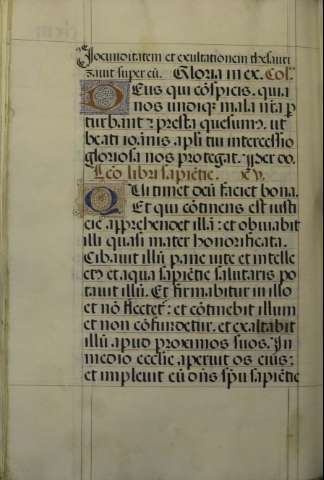 Jocunditatem et exultationem thesauri
zauit super eū. Gloria in ex. Col̄.
Deus qui cōspicis. quia
nos undiqȝ mala nr̄a p
turbant ⁊ presta quesumꝰ. ut
beati ioānis apl̄i tui intercessio
gloriosa nos protegat. Per do.
Leō libri sapiētie. xv.
Qui timet deū faciet bona.
Et qui cōtinens est iusti
cie apprehendet illā: et obuiabit
illi quasi mater honorificata.
Cibauit illū pane uite et intelle
ctꝰ et aqua sapiētie salutaris po
tauit illū. Et firmabitur in illo
et nō flectet᷑: et cōtinebit illum
et non cōfundetur. et exaltabit
illū apud proximos suos. In
medio ecclesie aperuit os eius:
et impleuit eū dn̄s sp̄u sapiētie